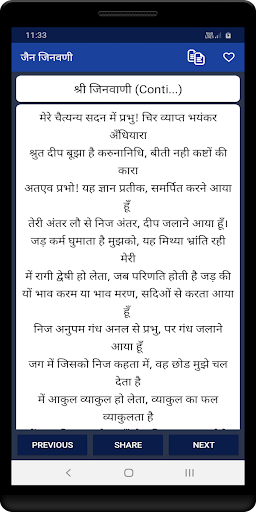 11:33
जैन जिनवाणी
श्री जिनवाणी (Conti...)
मेरे चैत्यन्य सदन में प्रभु! चिर व्याप्त भयंकर
अँधियारा
श्रुत दीप बूझा है करुनानिधि, बीती नही कष्टों की
कारा
अतएव प्रभो! यह ज्ञान प्रतीक, समर्पित करने आया
हूँ
तेरी अंतर लौ से निज अंतर, दीप जलाने आया हूँ।
जड़ कर्म घुमाता है मुझको, यह मिथ्या भ्रांति रही
मेरी
में रागी द्वेषी हो लेता, जब परिणति होती है जड़ की
यों भाव करम या भाव मरण, सदिओं से करता आया
हूँ
निज अनुपम गंध अनल से प्रभु, पर गंध जलाने
आया हूँ
जग में जिसको निज कहता में, वह छोड मुझे चल
देता है
में आकुल व्याकुल हो लेता, व्याकुल का फल
व्याकुलता है
PREVIOUS SHARE NEXT